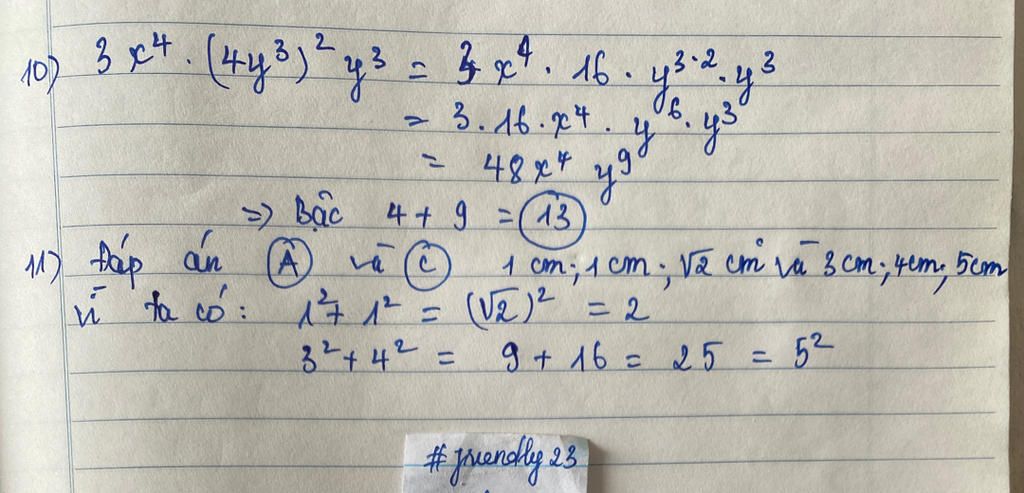 10) 3x⁴ · (4y³)² y³ = 3x⁴ · 16 · y³·² · y³
= 3 · 16 · x⁴ · y⁶ · y³
= 48x⁴ y⁹
=> Bậc 4 + 9 = 13
11) Đáp án A và C 1 cm; 1 cm; √2 cm và 3 cm; 4 cm; 5 cm
vì ta có: 1² + 1² = (√2)² = 2
3² + 4² = 9 + 16 = 25 = 5²
#friendly23